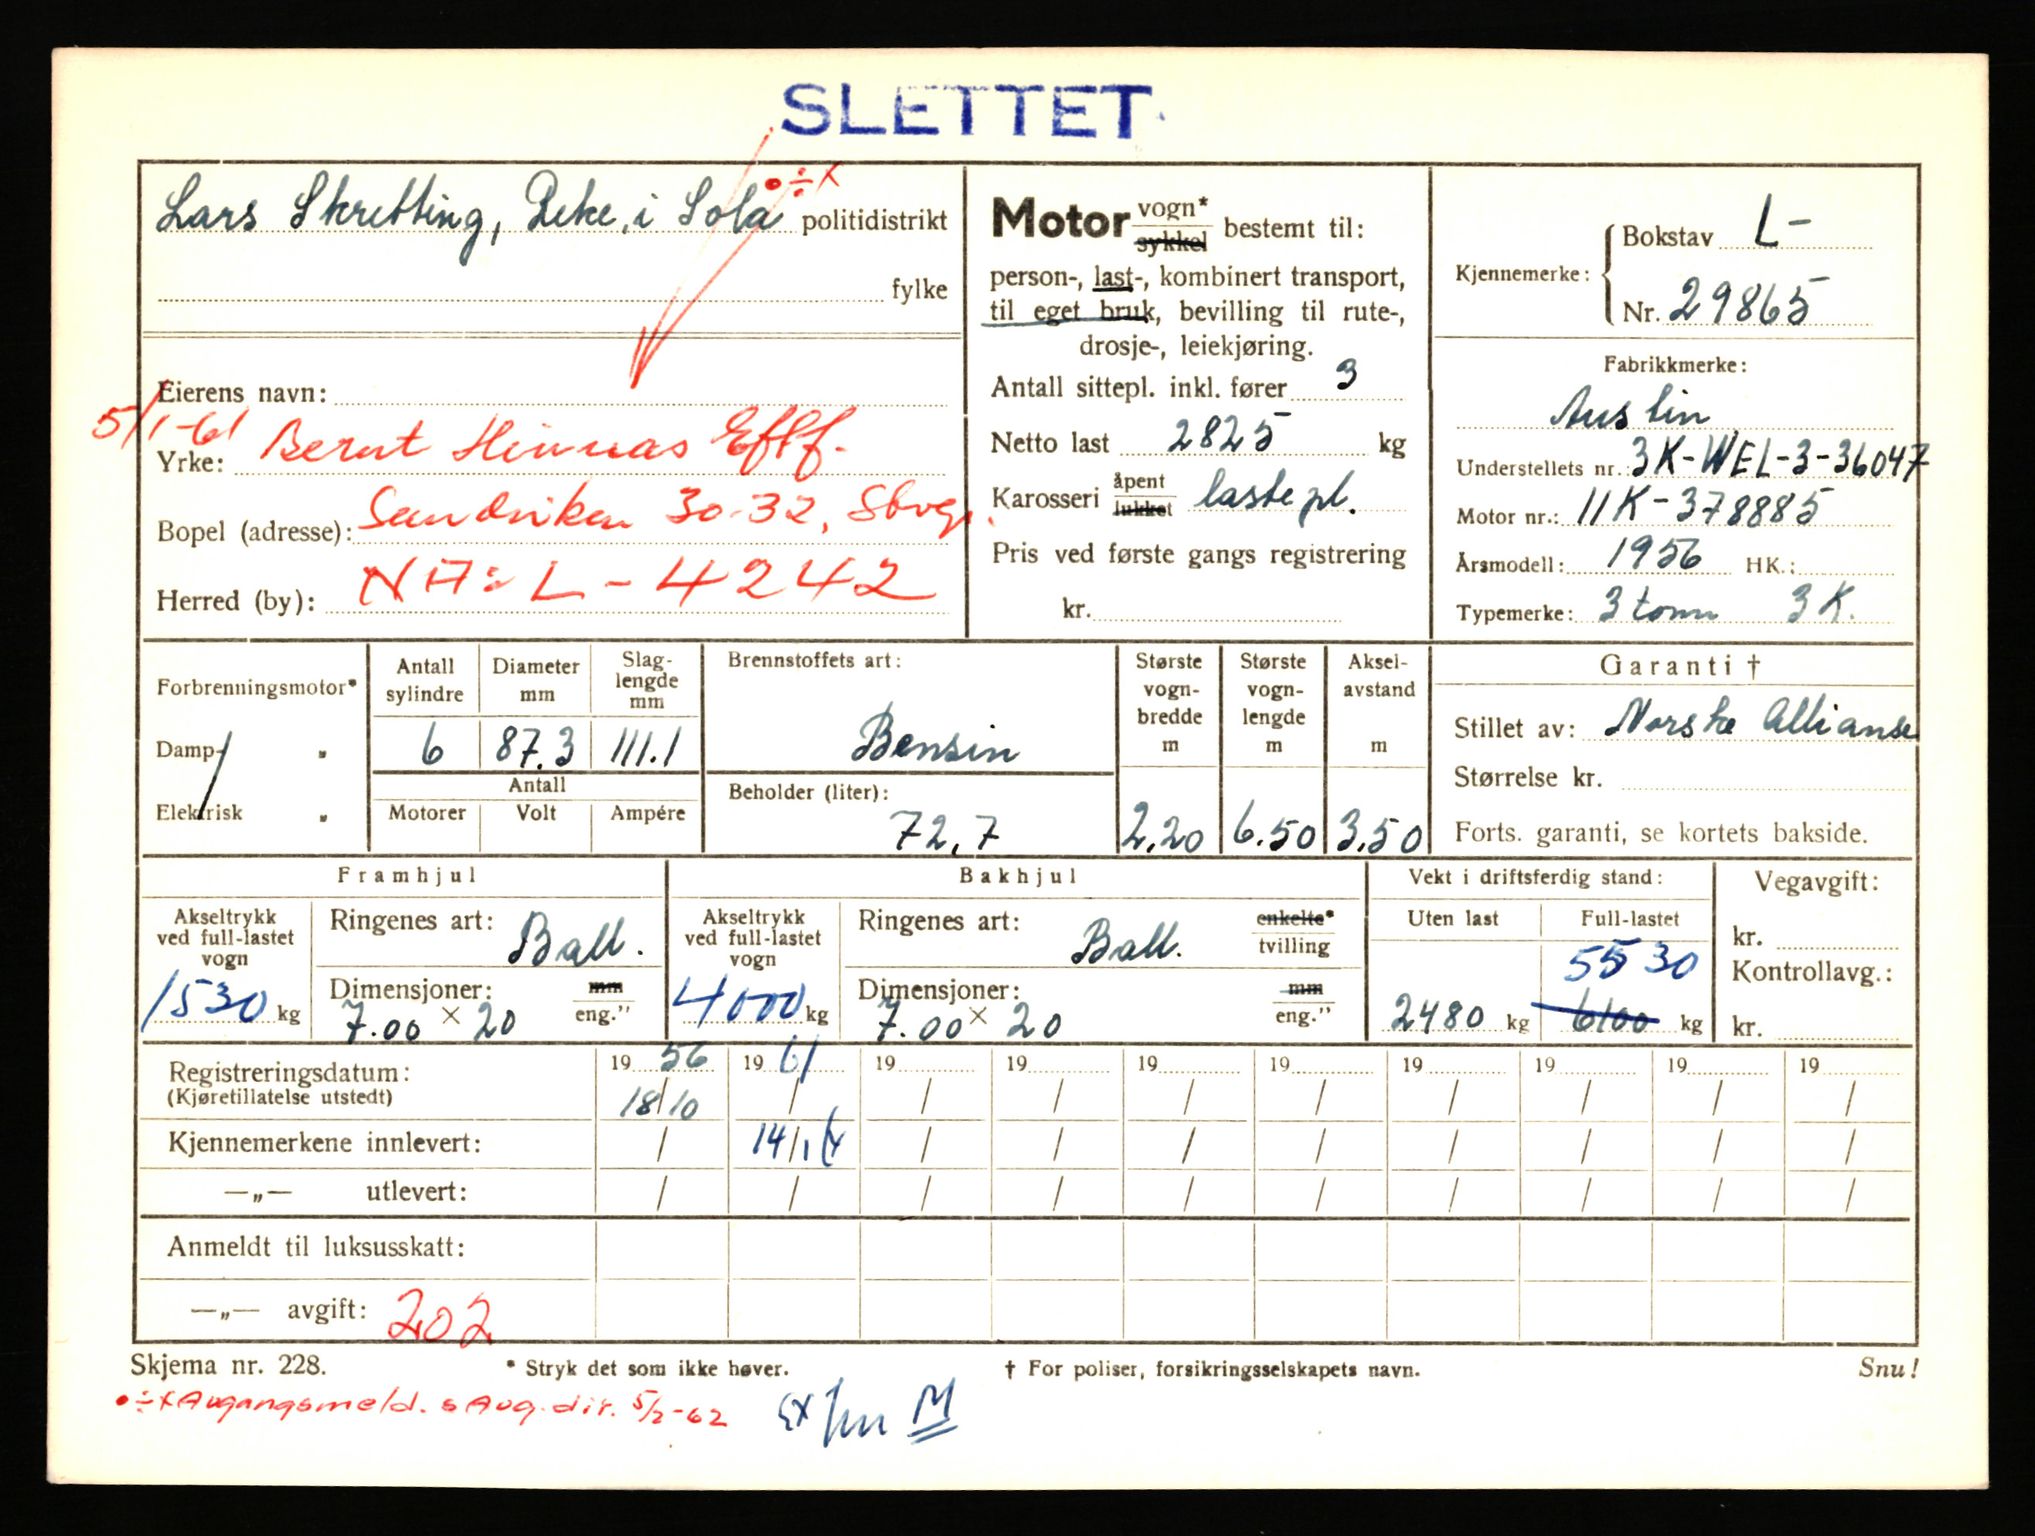 SLETTET
Lars Skretting, i Sola politidistrikt
•÷x
fylke
Eierens navn:
5/1-61 Bernt Hinnas Eftf.
Yrke:
Bopel (adresse): Sandviken 30-32, Stvgr.
Herred (by): NA: L-4242
Motor vogn* sykkel bestemt til:
person-, last-, kombinert transport,
til eget bruk, bevilling til rute-,
drosje-, leiekjøring.
Antall sittepl. inkl. fører 3
Netto last 2825 kg
Karosseri åpent lukket lastepl.
Pris ved første gangs registrering
kr.
Kjennemerke: Bokstav L-
Nr. 29865
Fabrikkmerke:
Austin
Understellets nr.: 3K-WEL-3-36047
Motor nr.: 11K-378885
Årsmodell: 1956 HK.:
Typemerke: 3 tonn 3K.
Forbrenningsmotor*
Damp- „
Elektrisk „
Antall sylindre
6
Diameter mm
87.3
Slag-
lengde
mm
111.1
Antall
Motorer Volt Ampére
Brennstoffets art:
Bensin
Beholder (liter):
72,7
Største
vogn-
bredde
m
2,20
Største
vogn-
lengde
m
6.50
Aksel-
avstand
m
3,50
Garanti †
Stillet av: Norske Allianse
Størrelse kr.
Forts. garanti, se kortets bakside.
Framhjul
Akseltrykk
ved full-lastet
vogn
1530 kg
Ringenes art: Ball.
Dimensjoner: mm eng."
7.00 × 20
Bakhjul
Akseltrykk
ved full-lastet
vogn
4000 kg
Ringenes art: Ball. enkelte* tvilling
Dimensjoner: mm eng."
7.00 × 20
Vekt i driftsferdig stand:
Uten last Full-lastet
5530
2480 kg 6100 kg
Vegavgift:
kr.
Kontrollavg.:
kr.
Registreringsdatum: 19 56 19 61 19 19 19 19 19 19 19 19
(Kjøretillatelse utstedt) 18/10 / / / / / / / / /
Kjennemerkene innlevert: / 14/1 / / / / / / / /
—„— utlevert: / / / / / / / / / /
Anmeldt til luksusskatt:
—„— avgift: 202
Skjema nr. 228. * Stryk det som ikke høver. † For poliser, forsikringsselskapets navn. Snu!
•÷x Avgangsmeld. s Avg.dir. 5/2-62
M